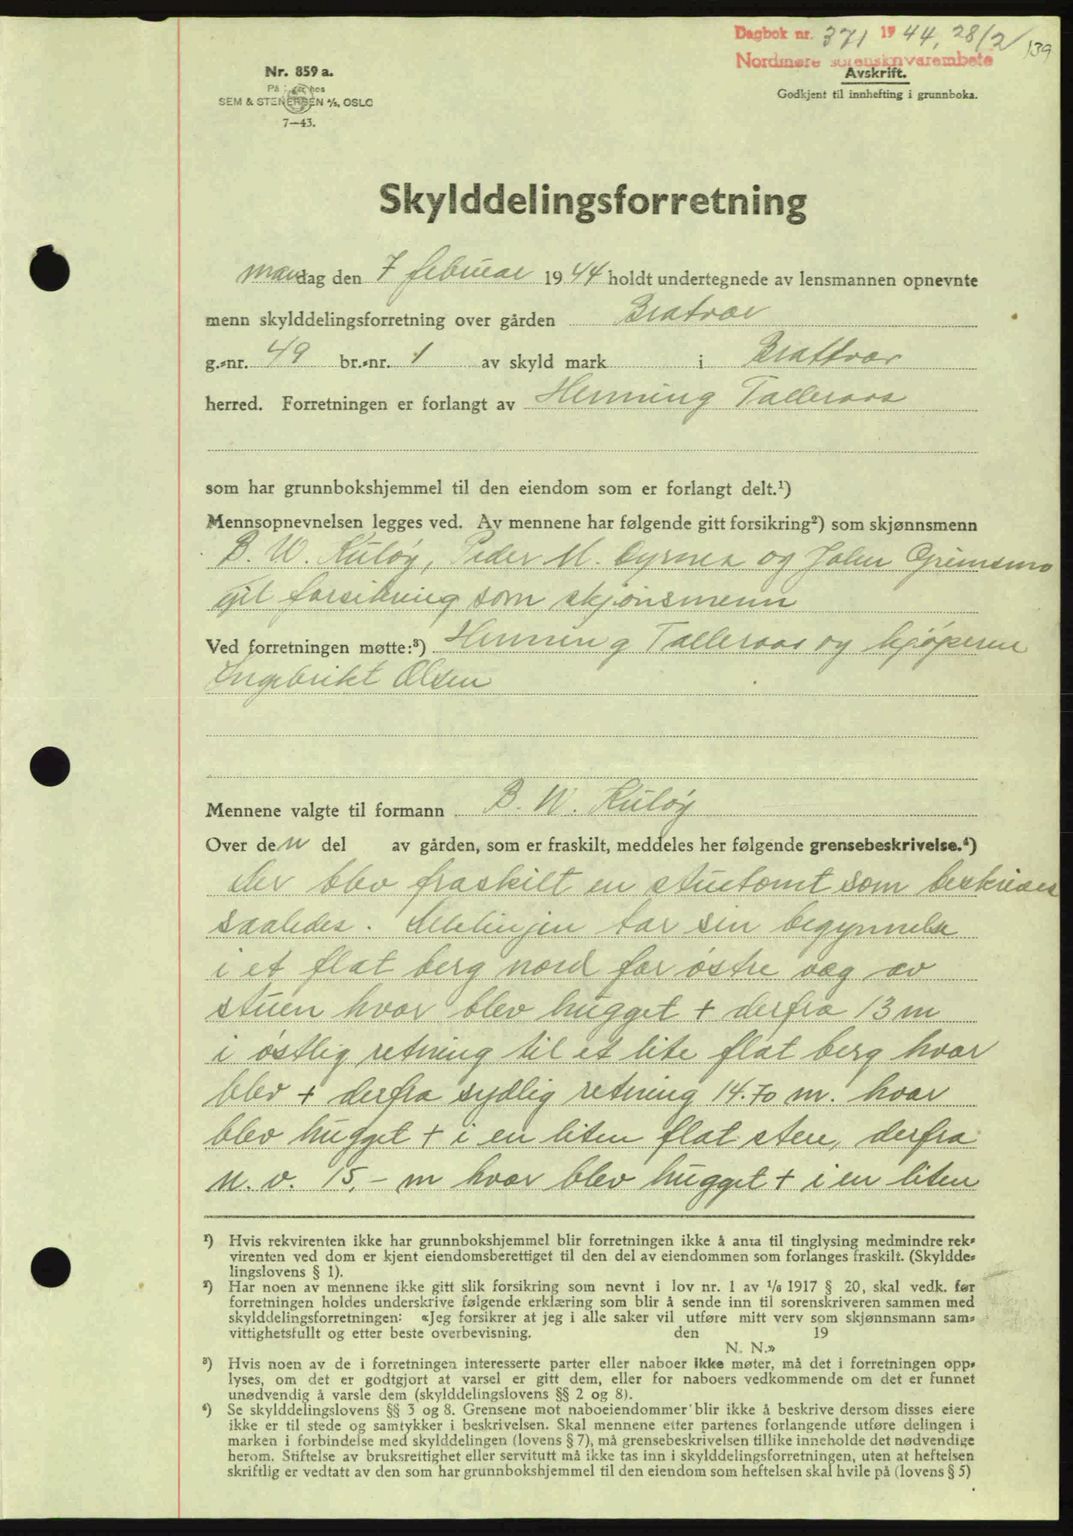 Dagbok nr. 371 1944, 28/2
139
Nordmøre sorenskriverembete
Nr. 859 a.
På lager hos
SEM & STENERSEN A/S, OSLO
7—43.
Avskrift.
Godkjent til innhefting i grunnboka.
Skylddelingsforretning
mandag den 7 februar 1944 holdt undertegnede av lensmannen opnevnte
menn skylddelingsforretning over gården Bratvær
g.-nr. 49 br.-nr. 1 av skyld mark i Brattvær
herred. Forretningen er forlangt av Henning Talleraas
som har grunnbokshjemmel til den eiendom som er forlangt delt.¹)
Mennsopnevnelsen legges ved. Av mennene har følgende gitt forsikring²) som skjønnsmenn
B. W. Kuløy, Peder M. Oyrnes og John Grimsmo
git forsikring som skjønsmenn
Ved forretningen møtte:³) Henning Talleraas og kjøperen
Ingebrikt Olsen
Mennene valgte til formann B. W. Kuløy
Over den del av gården, som er fraskilt, meddeles her følgende grensebeskrivelse.⁴)
Der blev fraskilt en stuetomt som beskrives
saaledes. Melinjen tar sin begynnelse
i et flat berg nord for østre væg av
stuen hvor blev hugget + derfra 13 m
i østlig retning til et lite flat berg hvor
blev + derfra sydlig retning 14.70 m. hvor
blev hugget + i en liten flat sten, derfra
n. v. 15,- m hvor blev hugget + i en liten
¹) Hvis rekvirenten ikke har grunnbokshjemmel blir forretningen ikke å anta til tinglysing medmindre rek-
virenten ved dom er kjent eiendomsberettiget til den del av eiendommen som forlanges fraskilt. (Skyldde-
lingslovens § 1).
²) Har noen av mennene ikke gitt slik forsikring som nevnt i lov nr. 1 av 1/6 1917 § 20, skal vedk. før
forretningen holdes underskrive følgende erklæring som blir å sende inn til sorenskriveren sammen med
skylddelingsforretningen: «Jeg forsikrer at jeg i alle saker vil utføre mitt verv som skjønnsmann sam-
vittighetsfullt og etter beste overbevisning. den 19
N. N.»
³) Hvis noen av de i forretningen interesserte parter eller naboer ikke møter, må det i forretningen opp-
lyses, om det er godtgjort at varsel er gitt dem, eller for naboers vedkommende om det er funnet
unødvendig å varsle dem (skylddelingslovens §§ 2 og 8).
⁴) Se skylddelingslovens §§ 3 og 8. Grensene mot naboeiendommer blir ikke å beskrive dersom disses eiere
ikke er til stede og samtykker i beskrivelsen. Skal mennene etter partenes forlangende utføre delingen i
marken i forbindelse med skylddelingen (lovens § 7), må grensebeskrivelsen tillike inneholde det nødvendige
herom. Stiftelse av bruksrettighet eller servitutt må ikke tas inn i skylddelingsforretningen, uten at heftelsen
skriftlig er vedtatt av den som har grunnbokshjemmel til den eiendom som heftelsen skal hvile på (lovens § 5)